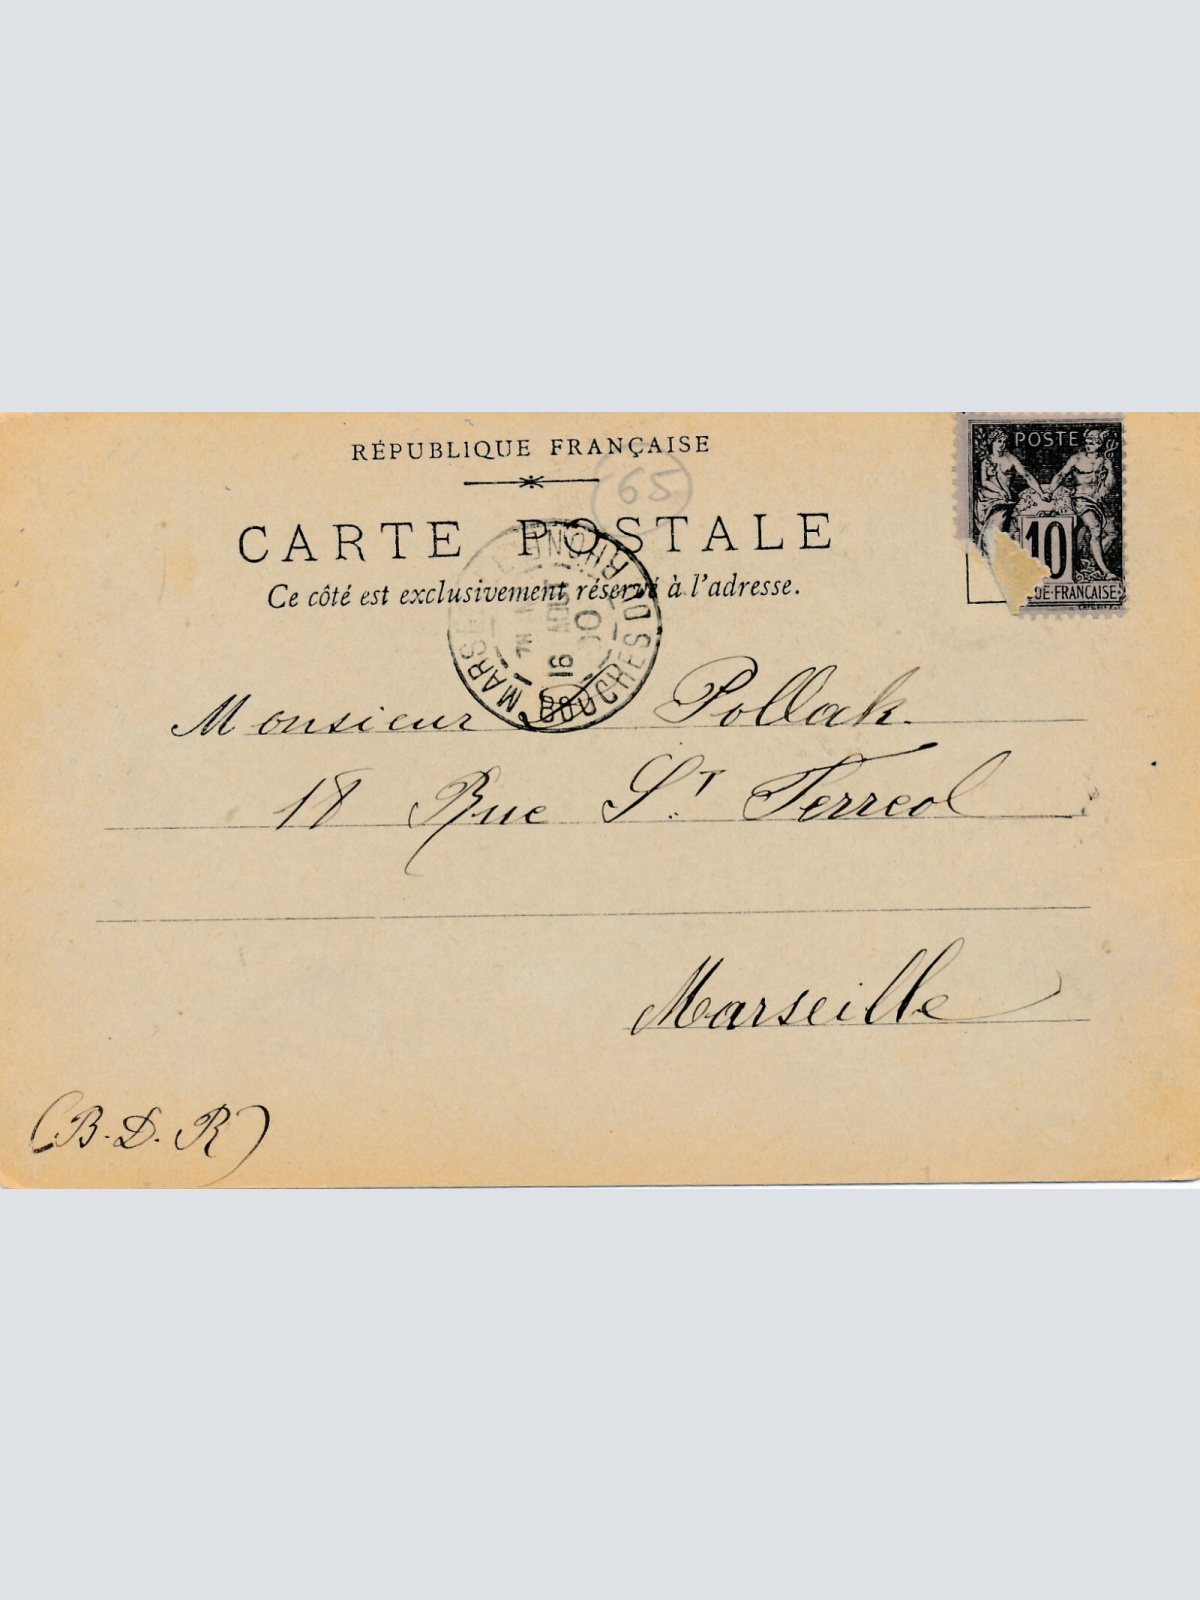 RÉPUBLIQUE FRANÇAISE
65
POSTE
10
DE FRANÇAISE
CARTE POSTALE
Ce côté est exclusivement réservé à l'adresse.
MARSE BOUCHES DU RHONE
16 AOUT 00
Monsieur Pollak.
18 Rue St. Ferreol
Marseille
(B. D. R)